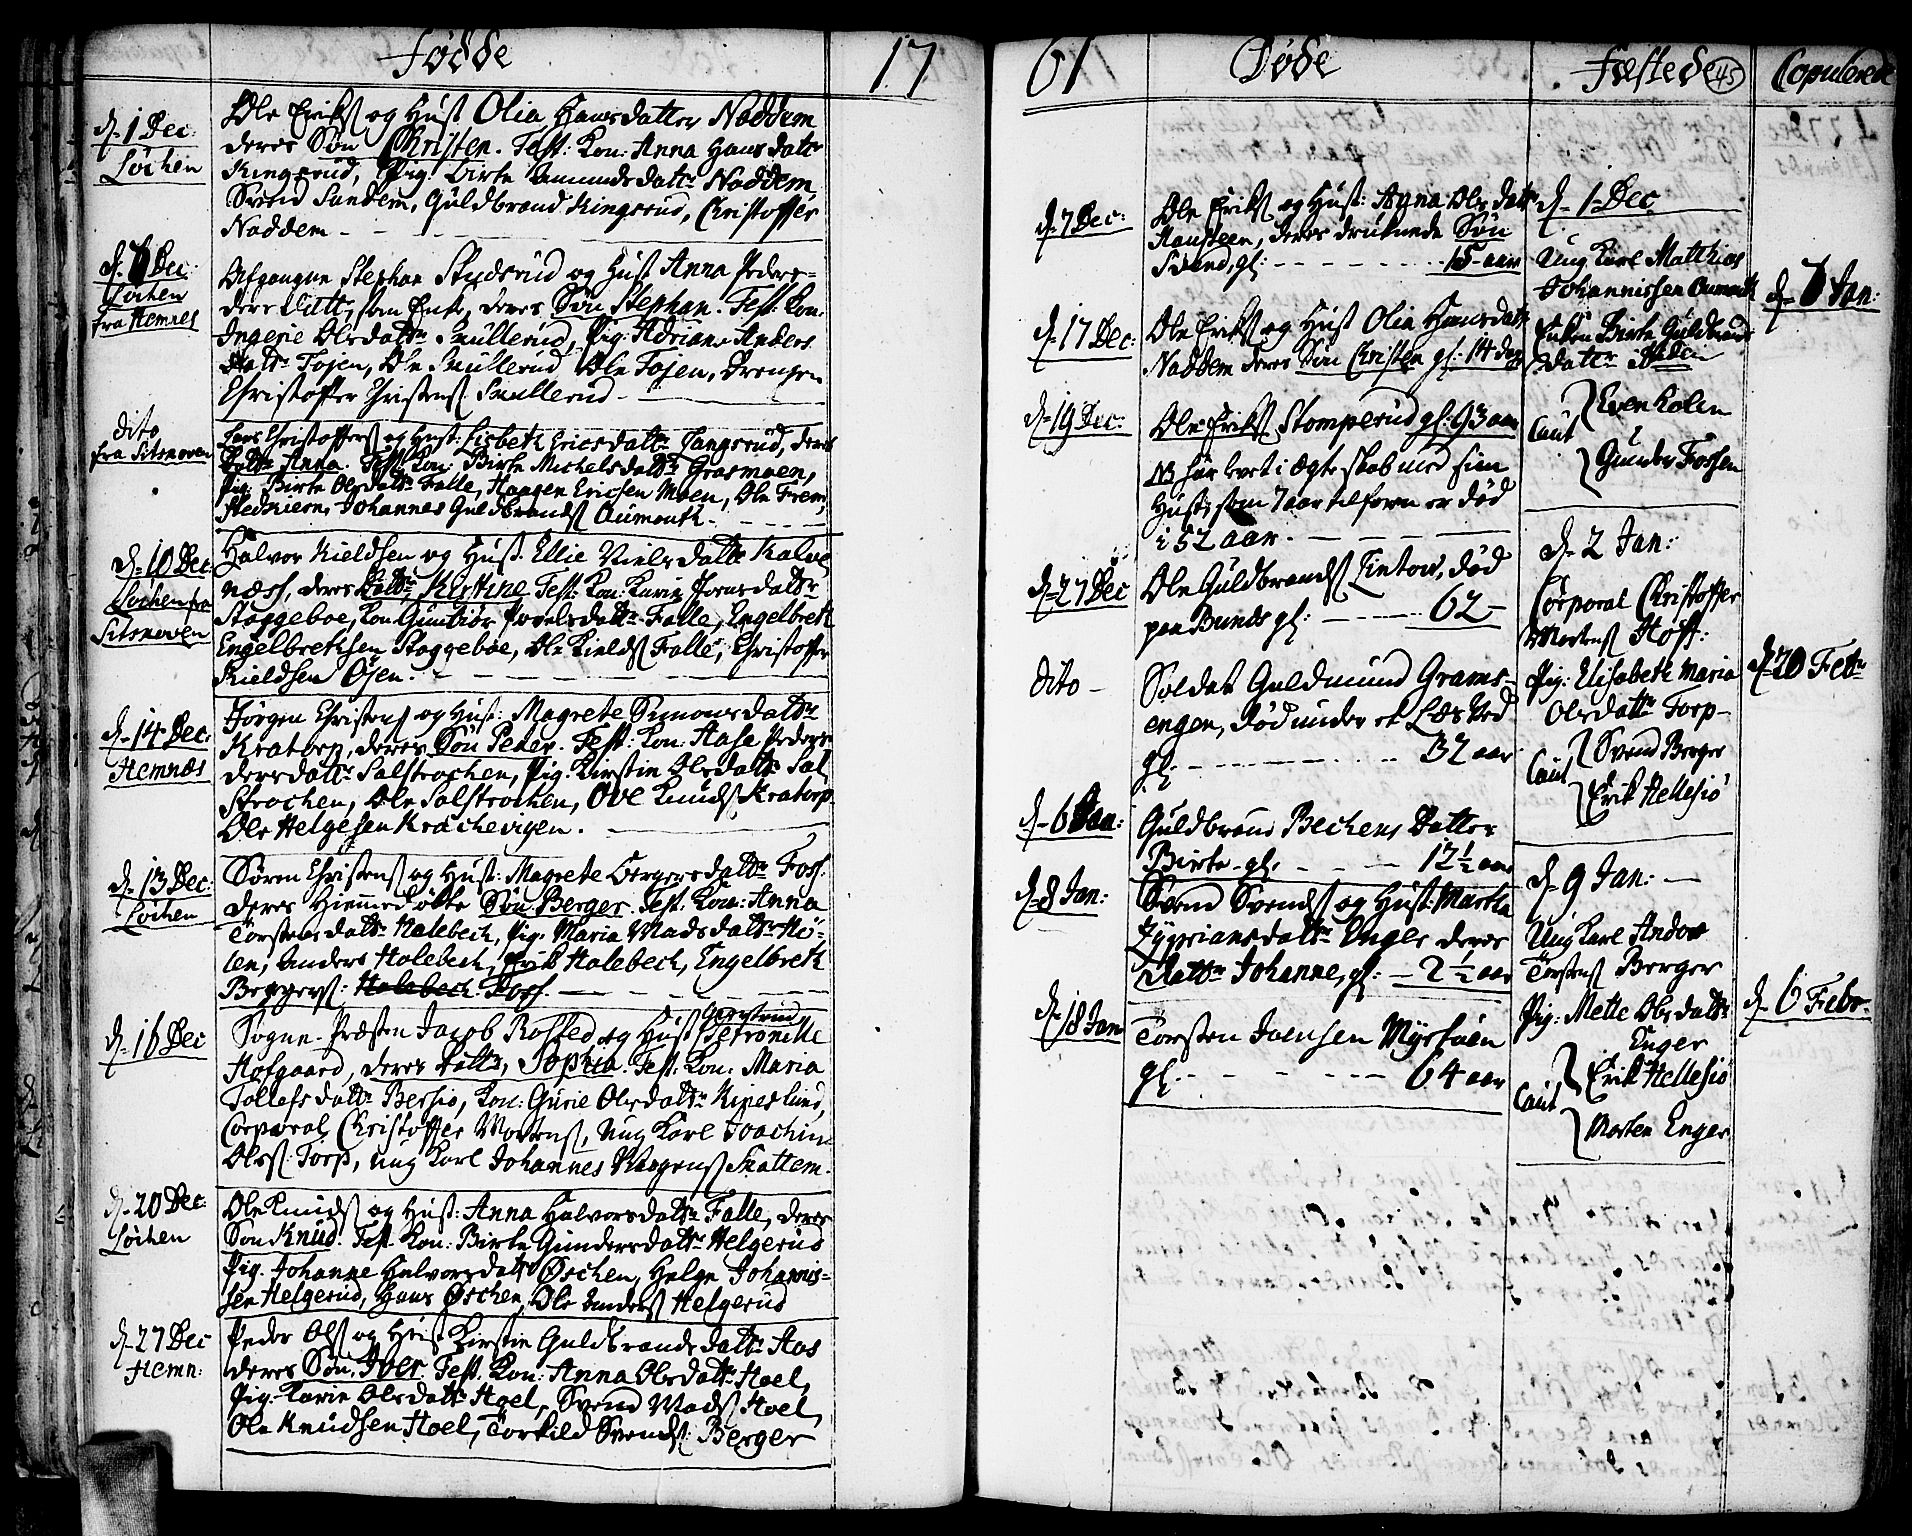 Fødde
17
d. 1 Dec:
Løchen
Ole Eriks. og Hust. Olia Hansdatter Naddem
deres Søn Christen. Test: Kon: Anna Hansdattr
Kingsrud, Pig. Birte Amundsdattr Naddem
Svend Sundem, Guldbrand Kingsrud, Christoffer
Naddem
d. 6 Dec:
Løchen
fra Hemnes
Afgangne Stephan Skydsrud og Hust. Anna Peders-
ders Datt, som Enke, deres Søn Stephan. Test: Kon:
Ingerie Olsdattr Smullerud, Pig. Adriane Anders
Dattr Tøjen, Ole Smullerud, Ole Tøjen, Drengen
Christoffer Christens. Smullerud
dito
fra Sitsnoven
Lars Christoffers. og Hust: Lisbeth Ericsdattr Langsrud, deres
Dattr Anna. Test. Kon: Birte Michelsdattr Grasmoen,
Pig. Birte Olsdattr Falle, Haagen Ericsen Moen, Ole Frem,
Stedkiern, Johannes Guldbrands. Aumonth
d. 10 Dec:
Løchen fra
Sitsnoven
Halvor Kieldsen og Hust. Ellie Nielsdattr Kalve
næss, deres Dattr Kirstine Test: Kon: Karie Jonsdattr
Staggeboe, Kon Gunbiør Povelsdattr Falle, Engelbreth
Engelbrethsen Staggeboe, Ole Kields. Falle, Christoffer
Kieldsen Øjen.
d. 14 Dec:
Hemnæs
Jørgen Christens. og Hust: Magrete Simonsdattr
Kratorp, deres Søn Peder. Test: Kon: Aase Peder
dersdattr Salstrochen, Pig. Kirstin Olsdattr Sal
strochen, Ole Salstrochen, Ove Knuds. Kratorp
Ole Helgesen Krachevigen.
d. 13 Dec:
Løchen
Søren Christens. og Hust: Magrete Bergersdattr Foss.
deres Hiemmedøbte Søn Berger. Test. Kon: Anna
Torstensdattr Halebech, Pig. Maria Madsdattr Hø-
len, Anders Holebech, Erik Holebech, Engelbreth
Bergers: Holebech Foss.
d. 16 Dec
Sogne-Præsten Jacob Rosted og Hust Giertrud Petronelle
Hofgaard, deres Datt, Sophia. Test. Kon: Maria
Tollefsdattr Bersiø, Kon: Gurie Olsdattr Kineslund,
Corporal Christoffer Mortens., Ung Karl Joachim
Olss. Torp, ung Karl Johannes Mogens. Snattem.
d. 20 Dec:
Løchen
Ole Knuds. og Hust: Anna Halvorsdattr Falle, deres
Søn Knud. Test. Kon: Birte Gundersdattr Helgerud
Pig. Johanne Halvorsdattr Øschen, Helge Johannis-
sen Helgerud, Hans Øschen, Ole Anders. Helgerud
d. 27 Dec
Hemn:
Peder Ols. og Hust Kirstin Guldbrandsdattr Aos
deres Søn Iver. Test. Kon: Anna Olsdattr Hoel,
Pig. Karie Olsdattr Hoel, Svend Mads. Hoel,
Ole Knudsen Hoel, Torkild Svends. Berger
61
Døde
d. 7 Dec:
Ole Eriks. og Hust: Anna Olsdattr
Hausteen, deres druknede Søn
Svend, gl: 15 aar
d. 17 Dec:
Ole Eriks. og Hust Olia Hansdattr
Naddem deres Søn Christen gl: 14 dag
d. 19 Dec:
Ole Eriks. Stomperud gl: 93 aar
NB har levet i Ægteskab med sin
Hust, som 7 aar tilforn er død
i 52 aar.
d. 27 Dec
Ole Guldbrands. Lintou, død
paa Bunds gl: 62
dito
Soldat Guldmund Grams-
engen, død under et Læs Ved
gl. 32 aar
d. 6 Jan:
Guldbrand Bechens Datter
Birte gl. 12½ aar
d. 8 Jan:
Svend Svends. og Hust: Martha
Zypriansdattr Enger deres
Dattr Johanne, gl: 2½ aar
d. 18 Jan
Torsten Joensen Myrstuen
gl. 64 aar
Fæstede
45
d. 1 Dec
Ung Karl Matthias
Johannissen Aumonth
Enken Birte Guldbrands
dattr ibiden
Caut
Even Kolen
Gunder Fossen
d. 2 Jan:
Corporal Christoffer
Mortens. Hoff:
Pig: Elisabeth Maria
Olsdattr Torp
Caut
Svend Berger
Erik Hellesiø
d. 9 Jan:
Ung Karl Andor
Torstens. Berger
Pig: Mette Olsdattr
Enger
Caut
Erik Hellesiø
Morten Enger
Copulerede
d. 7 Jan:
d. 20 Febr
d. 6 Febr.